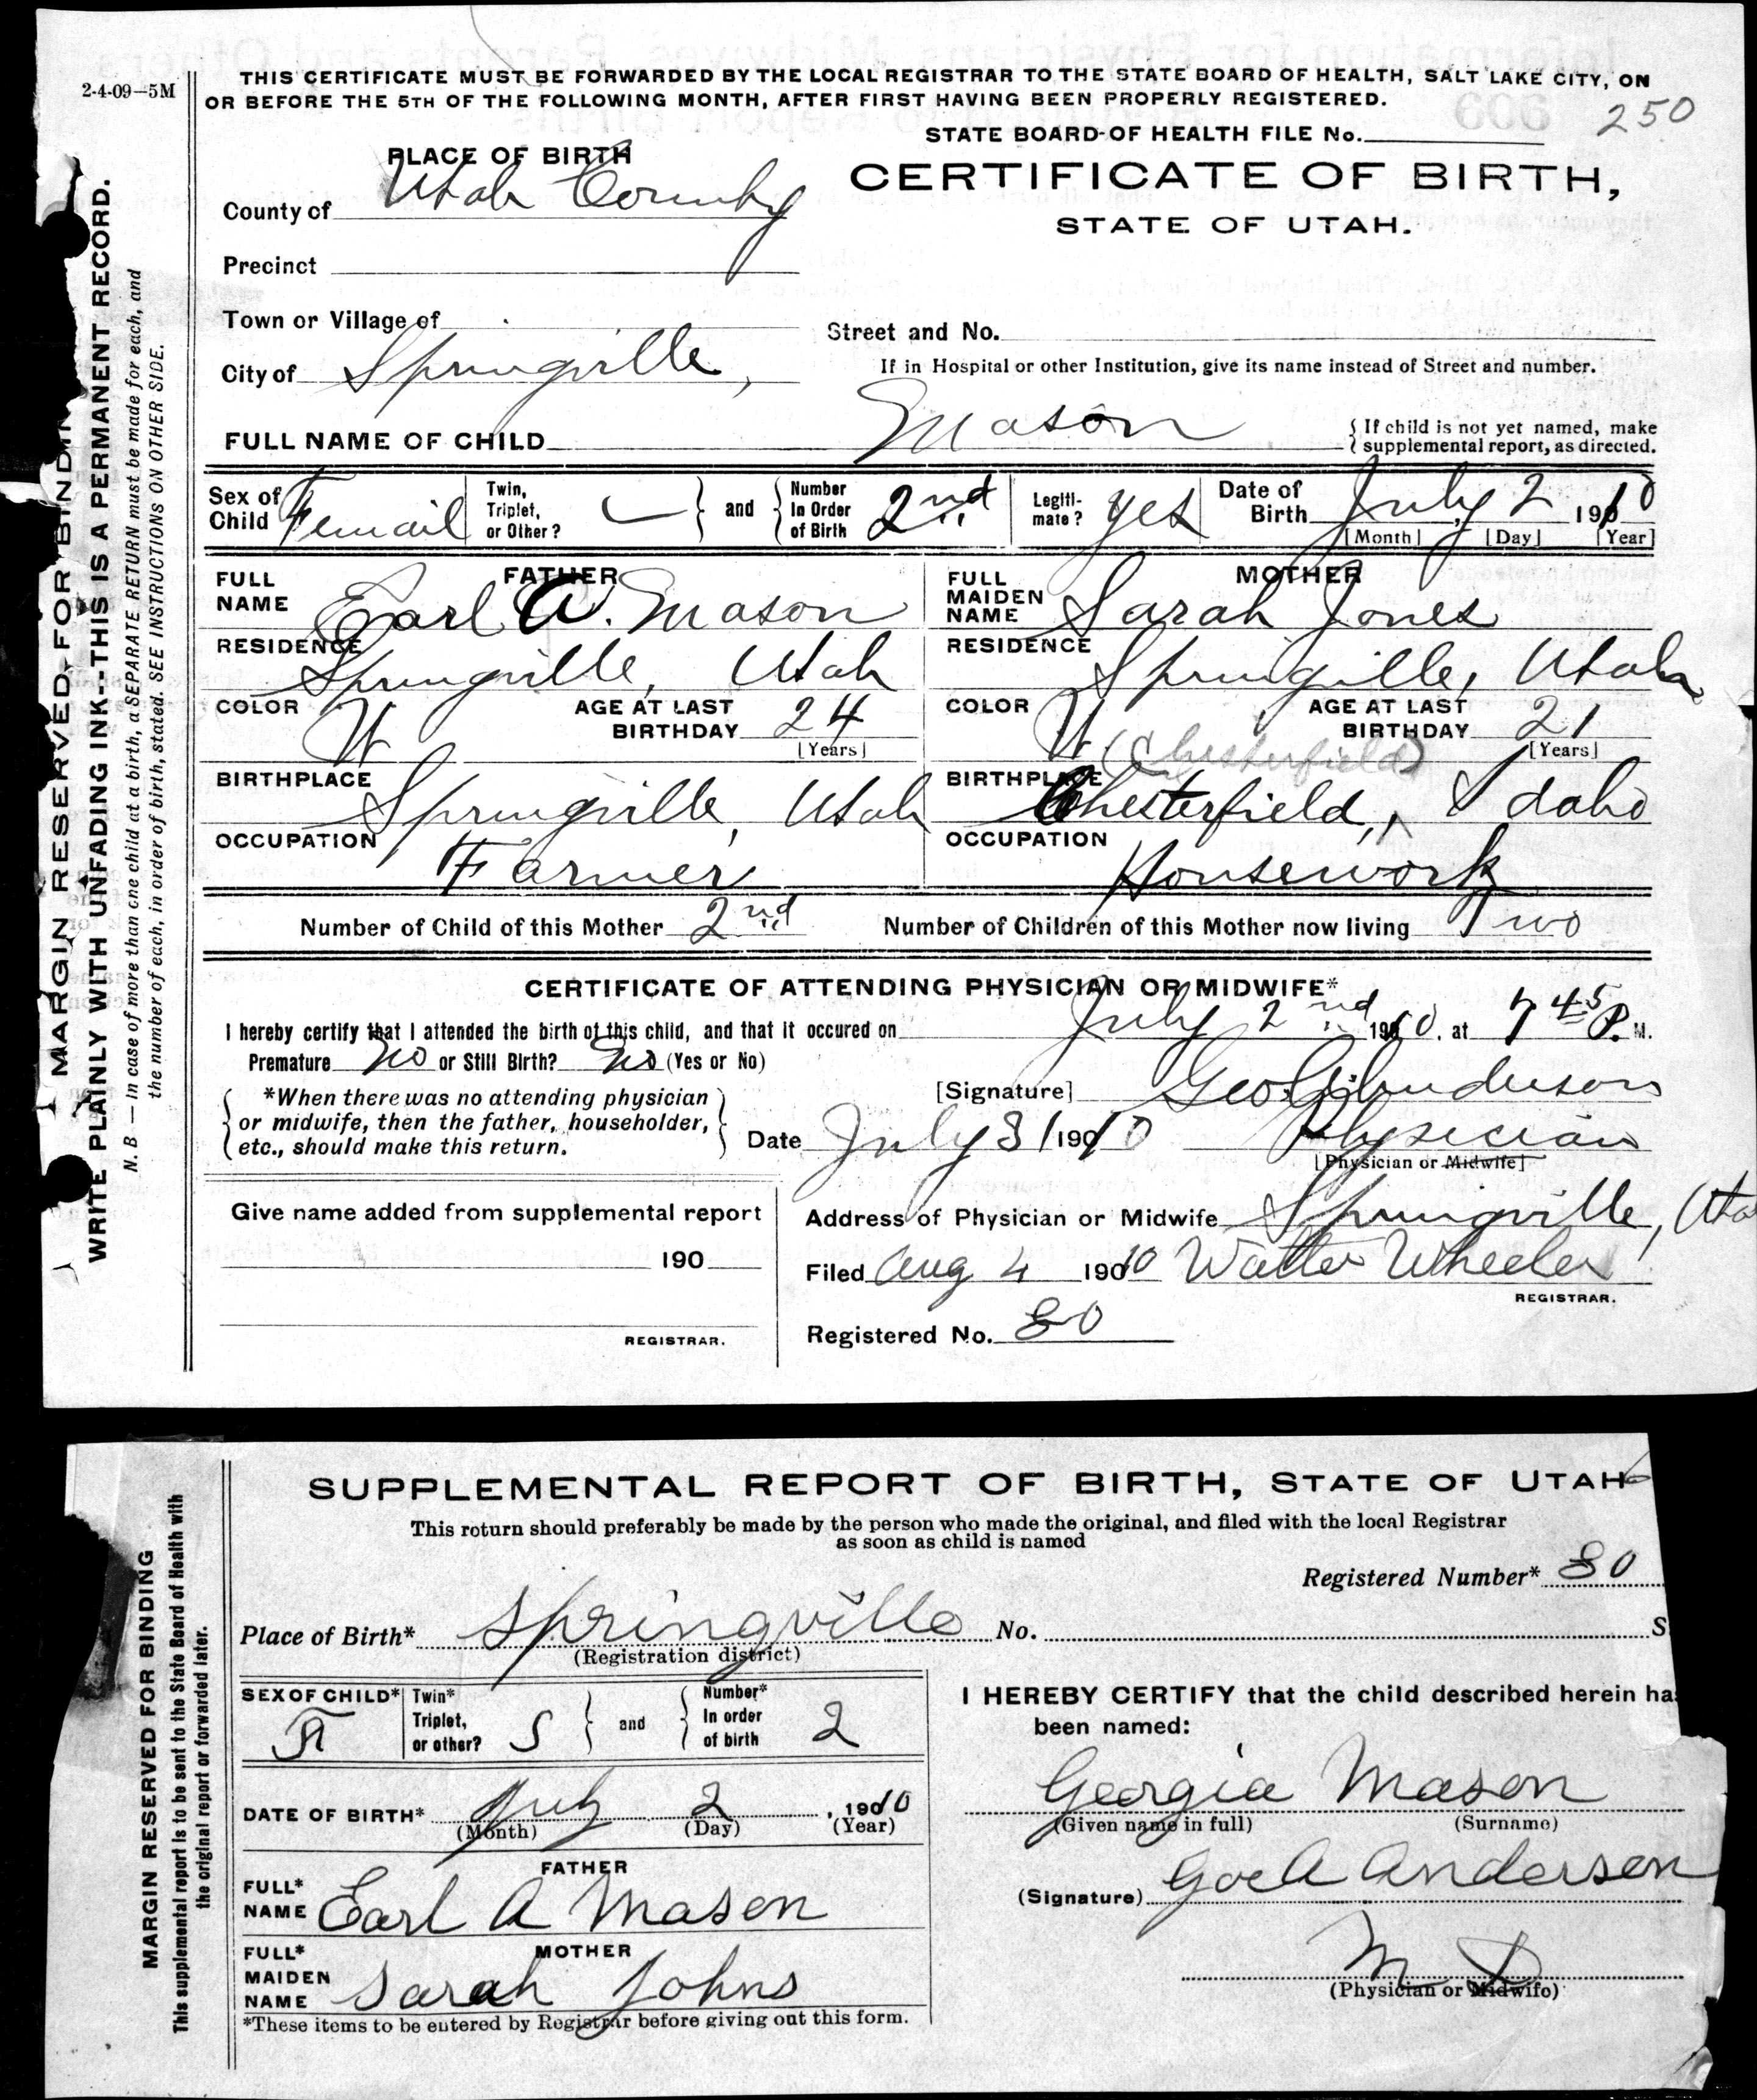 2-4-09—5M
THIS CERTIFICATE MUST BE FORWARDED BY THE LOCAL REGISTRAR TO THE STATE BOARD OF HEALTH, SALT LAKE CITY, ON
OR BEFORE THE 5TH OF THE FOLLOWING MONTH, AFTER FIRST HAVING BEEN PROPERLY REGISTERED.
250
STATE BOARD OF HEALTH FILE No.
PLACE OF BIRTH
CERTIFICATE OF BIRTH,
STATE OF UTAH.
County of Utah County
Precinct
Town or Village of
Street and No.
City of Springville,
If in Hospital or other Institution, give its name instead of Street and number.
FULL NAME OF CHILD Mason
If child is not yet named, make
supplemental report, as directed.
Sex of Child Femail Twin, Triplet, or Other? and Number In Order of Birth 2nd Legiti-mate? yes Date of Birth July 2 1910
[Month] [Day] [Year]
FATHER MOTHER
FULL NAME Earl A. Mason FULL MAIDEN NAME Sarah Jones
RESIDENCE Springville, Utah RESIDENCE Springille, Utah
COLOR W AGE AT LAST BIRTHDAY 24 [Years] COLOR W AGE AT LAST BIRTHDAY 21 [Years]
(Chesterfield)
BIRTHPLACE Springville, Utah BIRTHPLACE Chesterfield, Idaho
OCCUPATION Farmer OCCUPATION Housework
Number of Child of this Mother 2nd Number of Children of this Mother now living Two
CERTIFICATE OF ATTENDING PHYSICIAN OR MIDWIFE*
I hereby certify that I attended the birth of this child, and that it occured on July 2nd 1910, at 7 45 P. M.
Premature No or Still Birth? No (Yes or No)
*When there was no attending physician
or midwife, then the father, householder,
etc., should make this return.
[Signature] Geo A Anderson
Date July 31 1910 Physician
[Physician or Midwife]
Give name added from supplemental report
190
REGISTRAR.
Address of Physician or Midwife Springville, Uta
Filed Aug 4 1910 Walter Wheeler
REGISTRAR.
Registered No. 80
MARGIN RESERVED FOR BINDIN
WRITE PLAINLY WITH UNFADING INK---THIS IS A PERMANENT RECORD.
N. B — In case of more than one child at a birth, a SEPARATE RETURN must be made for each, and
the number of each, in order of birth, stated. SEE INSTRUCTIONS ON OTHER SIDE.
SUPPLEMENTAL REPORT OF BIRTH, STATE OF UTAH
This return should preferably be made by the person who made the original, and filed with the local Registrar
as soon as child is named
Registered Number* 80
Place of Birth* Springville No. S
(Registration district)
SEX OF CHILD* F Twin* Triplet, or other? S and Number* In order of birth 2
I HEREBY CERTIFY that the child described herein has
been named:
DATE OF BIRTH* July 2, 1910
(Month) (Day) (Year)
Georgia Mason
(Given name in full) (Surname)
FATHER
FULL* NAME Earl A Mason
(Signature) Geo A Anderson
MOTHER
FULL* MAIDEN NAME Sarah Johns
M D
(Physician or Midwife)
*These items to be entered by Registrar before giving out this form.
MARGIN RESERVED FOR BINDING
This supplemental report is to be sent to the State Board of Health with
the original report or forwarded later.